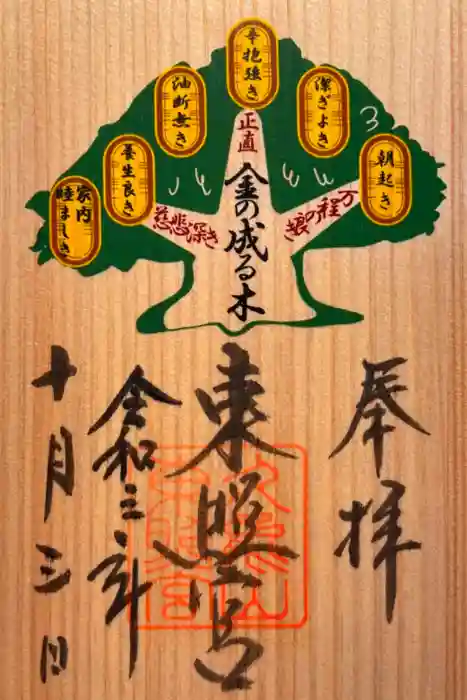 朝起き
潔ぎよき
辛抱強き
油断無き
養生良き
家内
睦まじき
万程の良き
正直
慈悲深き
金の成る木
奉拝
東照宮
久能山
東照宮
令和三年
十月三日